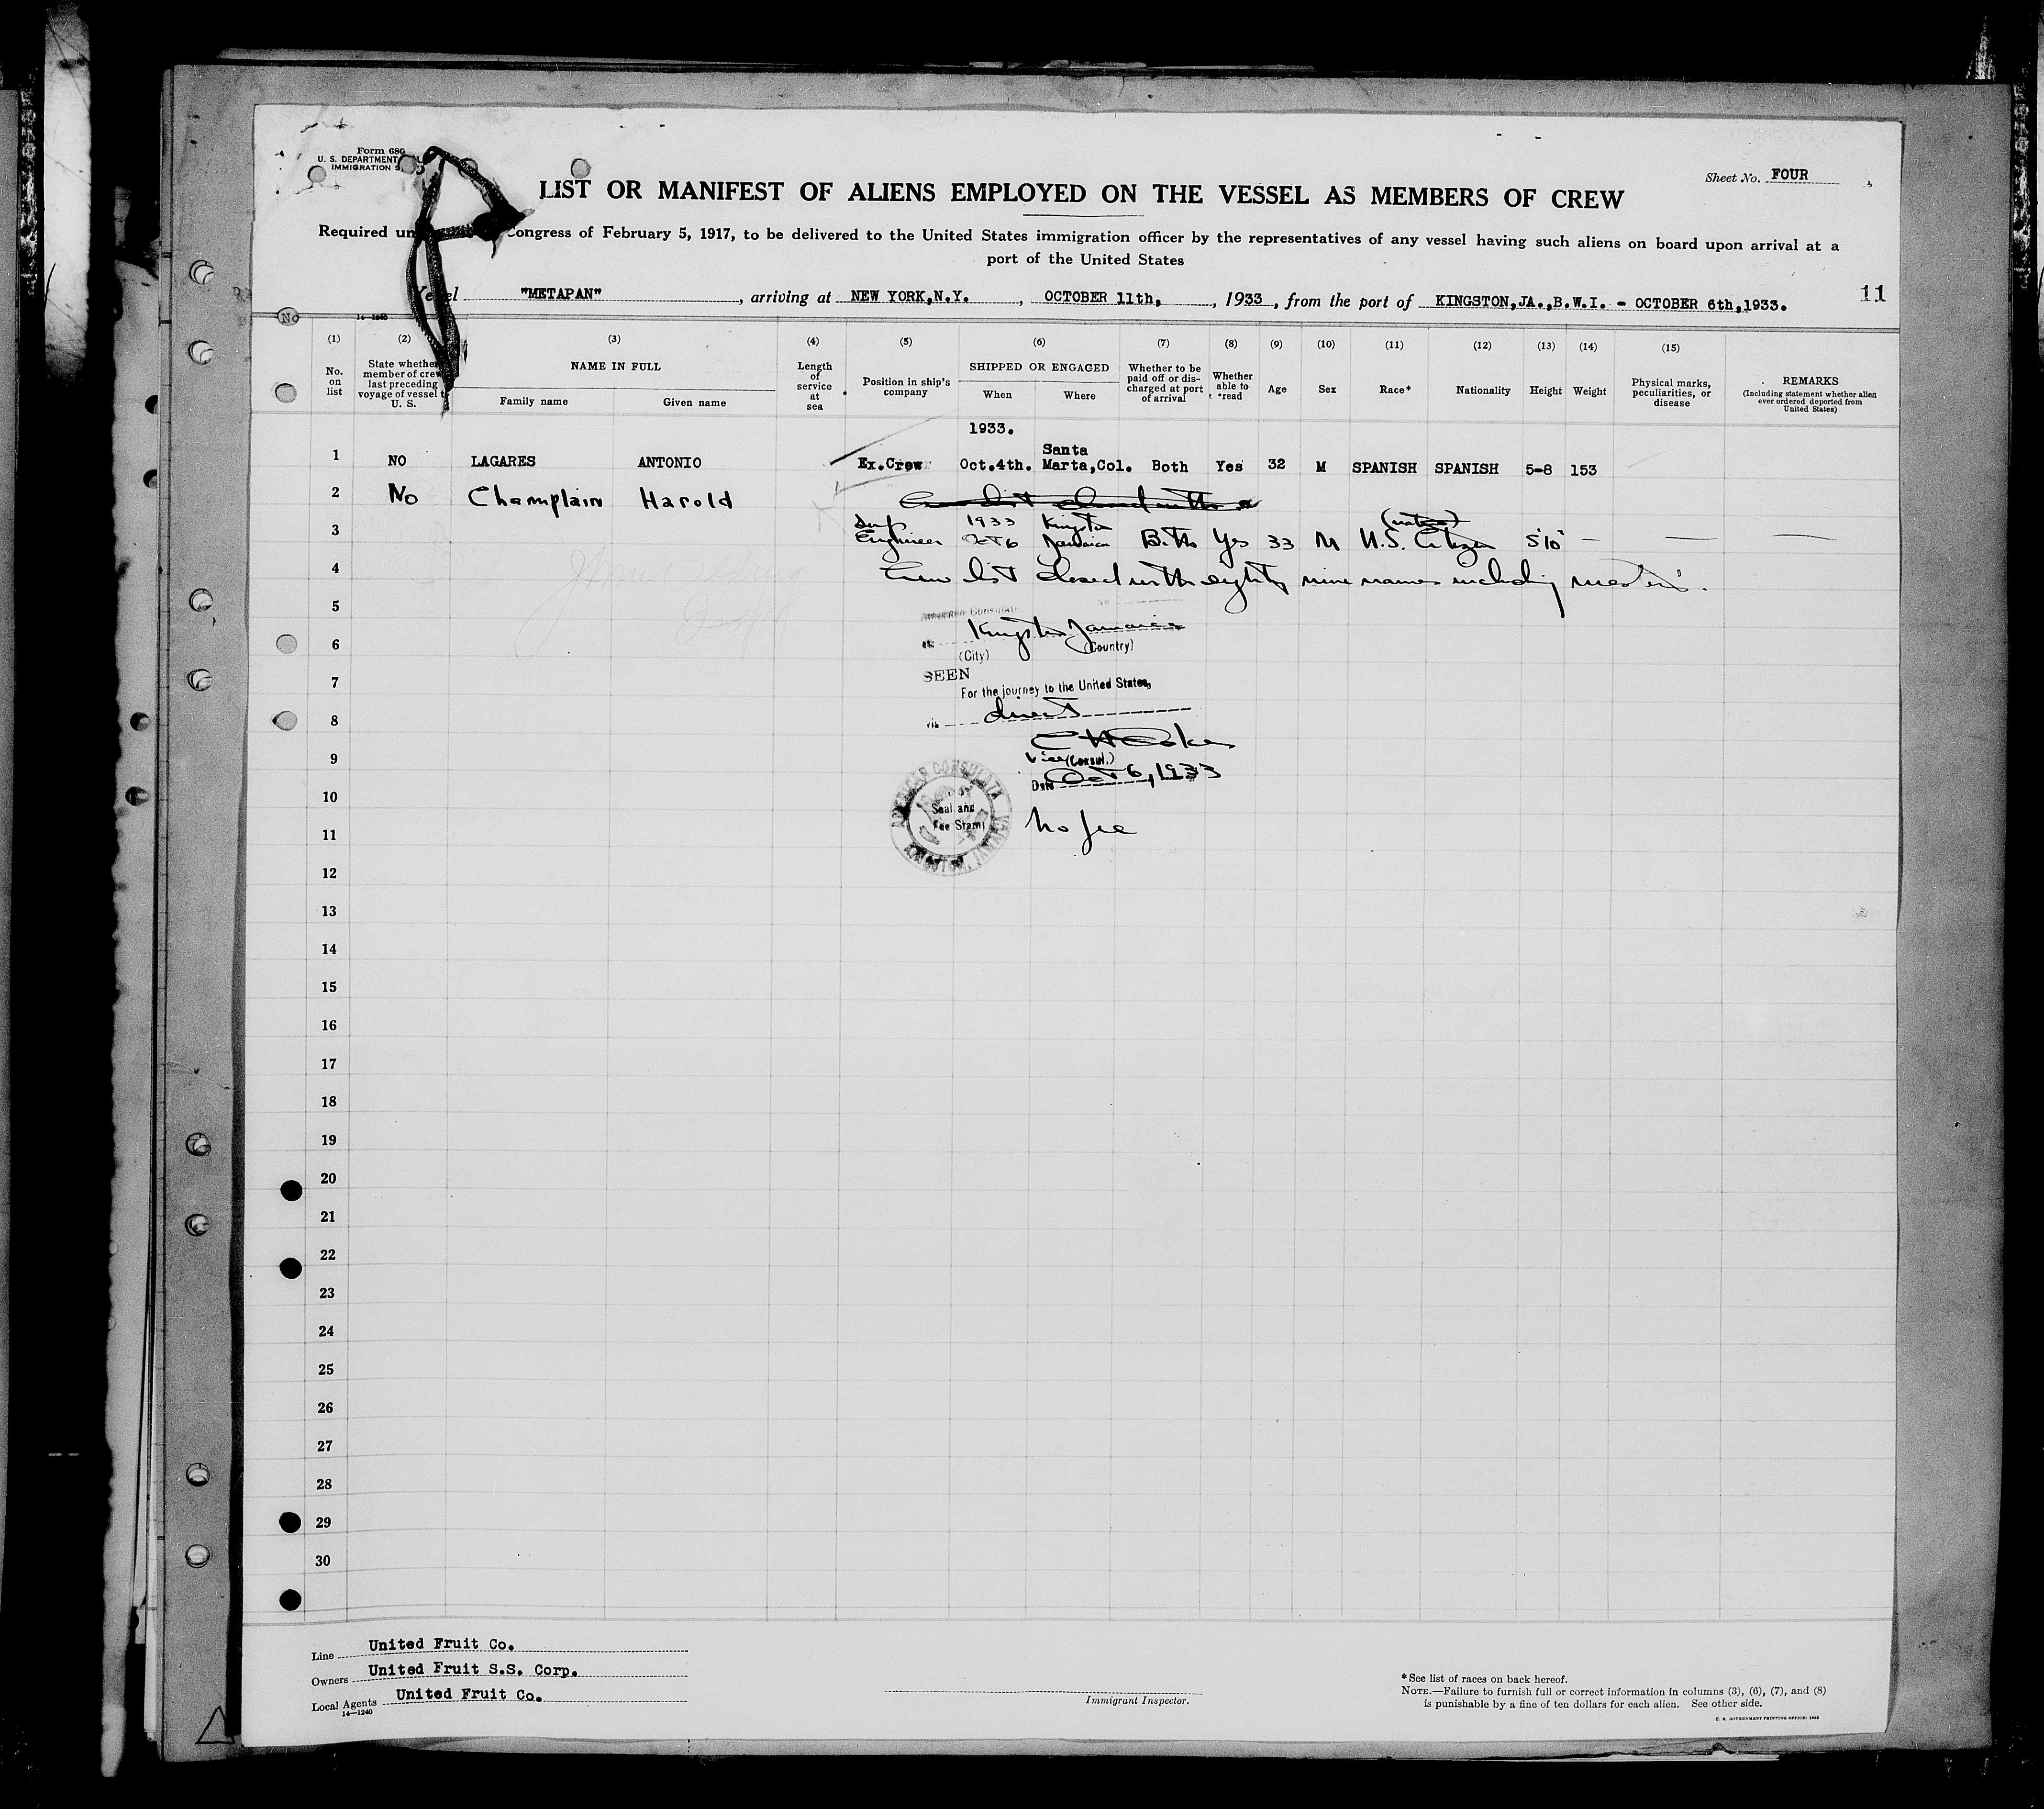 Form 680
U. S. DEPARTMENT
IMMIGRATION
Sheet No. FOUR
LIST OR MANIFEST OF ALIENS EMPLOYED ON THE VESSEL AS MEMBERS OF CREW
Required Congress of February 5, 1917, to be delivered to the United States immigration officer by the representatives of any vessel having such aliens on board upon arrival at a
port of the United States
Vessel "METAPAN", arriving at NEW YORK,N.Y., OCTOBER 11th, 1933, from the port of KINGSTON,JA.,B.W.I. - OCTOBER 6th,1933. 11
No
14—1240
(1) (2) (3) (4) (5) (6) (7) (8) (9) (10) (11) (12) (13) (14) (15)
No. on list
State whether member of crew last preceding voyage of vessel t U. S.
NAME IN FULL
Family name Given name
Length of service at sea
Position in ship's company
SHIPPED OR ENGAGED
When Where
Whether to be paid off or discharged at port of arrival
Whether able to read
Age Sex Race* Nationality Height Weight
Physical marks, peculiarities, or disease
REMARKS
(Including statement whether alien ever ordered deported from United States)
1933.
1 NO LAGARES ANTONIO Ex.Crew Oct.4th. Santa Marta,Col. Both Yes 32 M SPANISH SPANISH 5-8 153
2 No Champlain Harold Crew list closed with
1933 Kingston
3 Engineer Oct 6 Jamaica Both Yes 33 M U.S. Citizen 5'10" — — —
4 Crew list closed with eighty nine names including master's.
5 American Consulate
6 Kingston Jamaica
(City) (Country)
7 SEEN
For the journey to the United States,
8 via direct
9 Vice (Consul.)
Date Oct 6, 1933
10 Seal and
11 Fee Stamp No fee
AMERICAN CONSULATE KINGSTON, JAMAICA
12
13
14
15
16
17
18
19
20
21
22
23
24
25
26
27
28
29
30
Line United Fruit Co.
Owners United Fruit S.S. Corp.
Local Agents United Fruit Co.
14—1240
Immigrant Inspector.
*See list of races on back hereof.
NOTE.—Failure to furnish full or correct information in columns (3), (6), (7), and (8)
is punishable by a fine of ten dollars for each alien. See other side.
U. S. GOVERNMENT PRINTING OFFICE: 1932